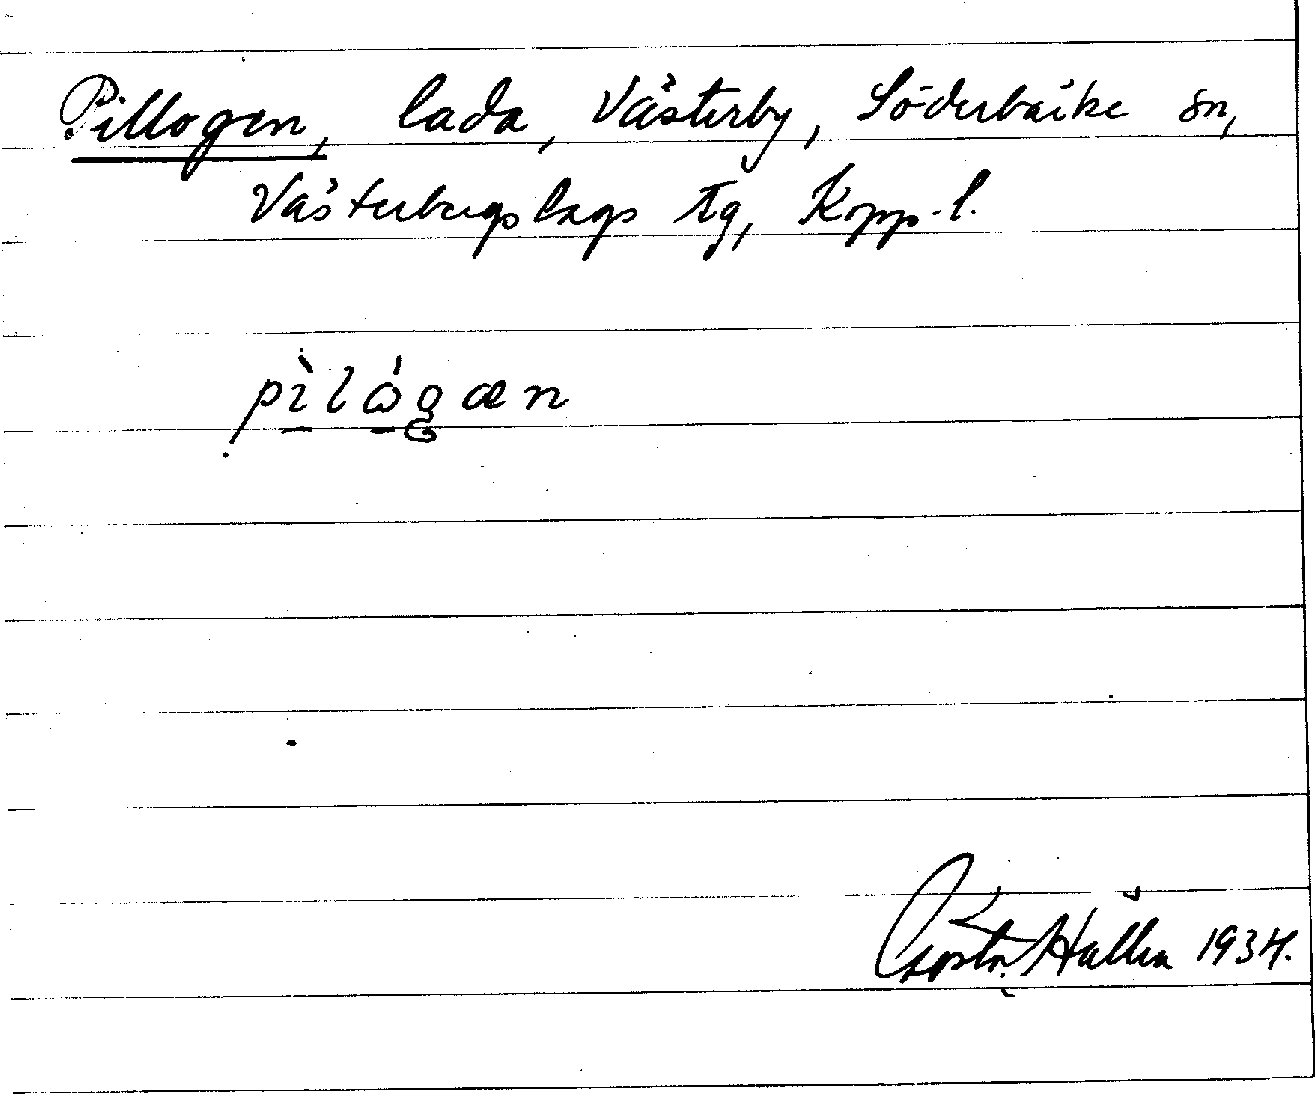 Pillogen, lada, Västerby, Söderbärke sn,
Västerbergslags tg, Kopp. l.
pìlógæn
Gösta Hallén 1934.